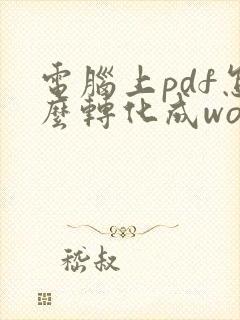 電腦上pdf怎
麼轉化成wo
嵇叔